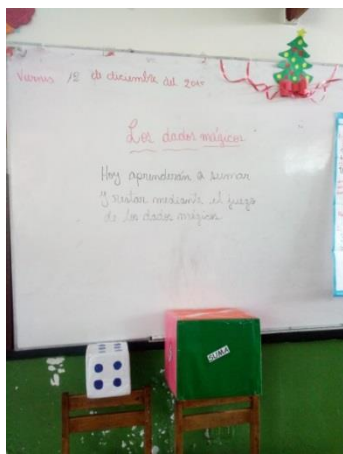 Viernes 1º de diciembre del 2017
Los dados mágicos
Hoy aprenderán a sumar
y restar mediante el juego
de los dados mágicos
SUMA